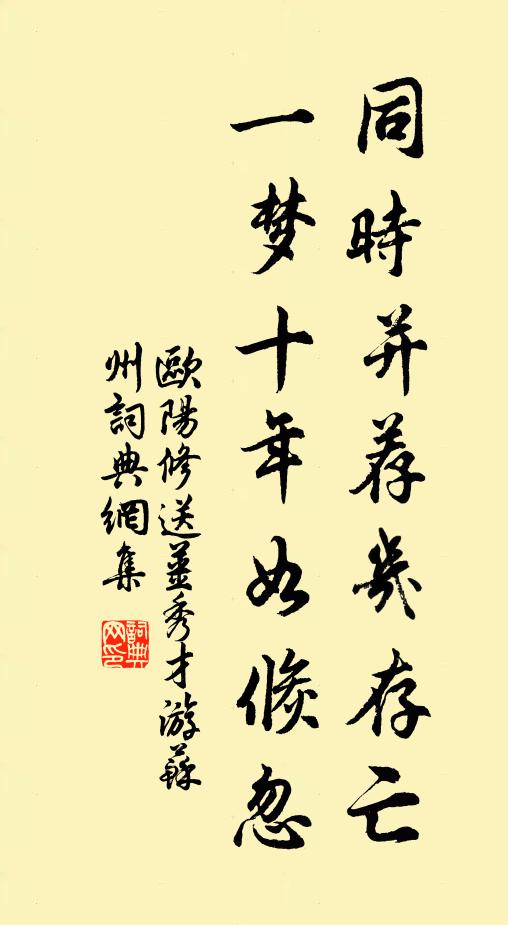 同時并荐幾存亡
一梦十年如倏忽
歐陽修送薑秀才游蘇
州詞典網集
詞典网印